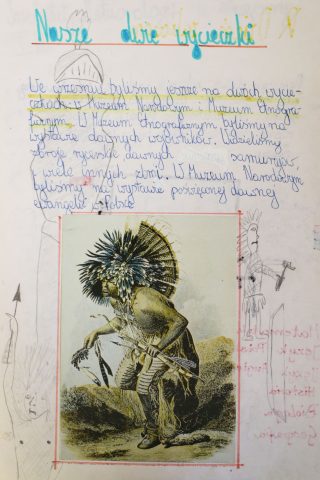 Nasze dwie wycieczki
We wrześniu byliśmy jeszcze na dwóch wycie-
czkach: w Muzeum Narodowym i Muzeum Etnogra-
ficznym. W Muzeum Etnograficznym byliśmy na
wystawie dawnych wojowników. Widzieliśmy
zbroje rycerskie dawnych samurajów
i wiele innych zbroi. W Muzeum Narodowym
byliśmy na wystawie poświęconej dawnej
w Polsce
Historia
Geografia